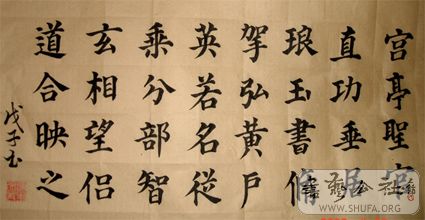 宮亭聖
直功垂
琅玉書
弘黃戶
英若名從
乘分部智
玄相望侶
道合映之
戊子玉
WWW.SHUFA.ORG